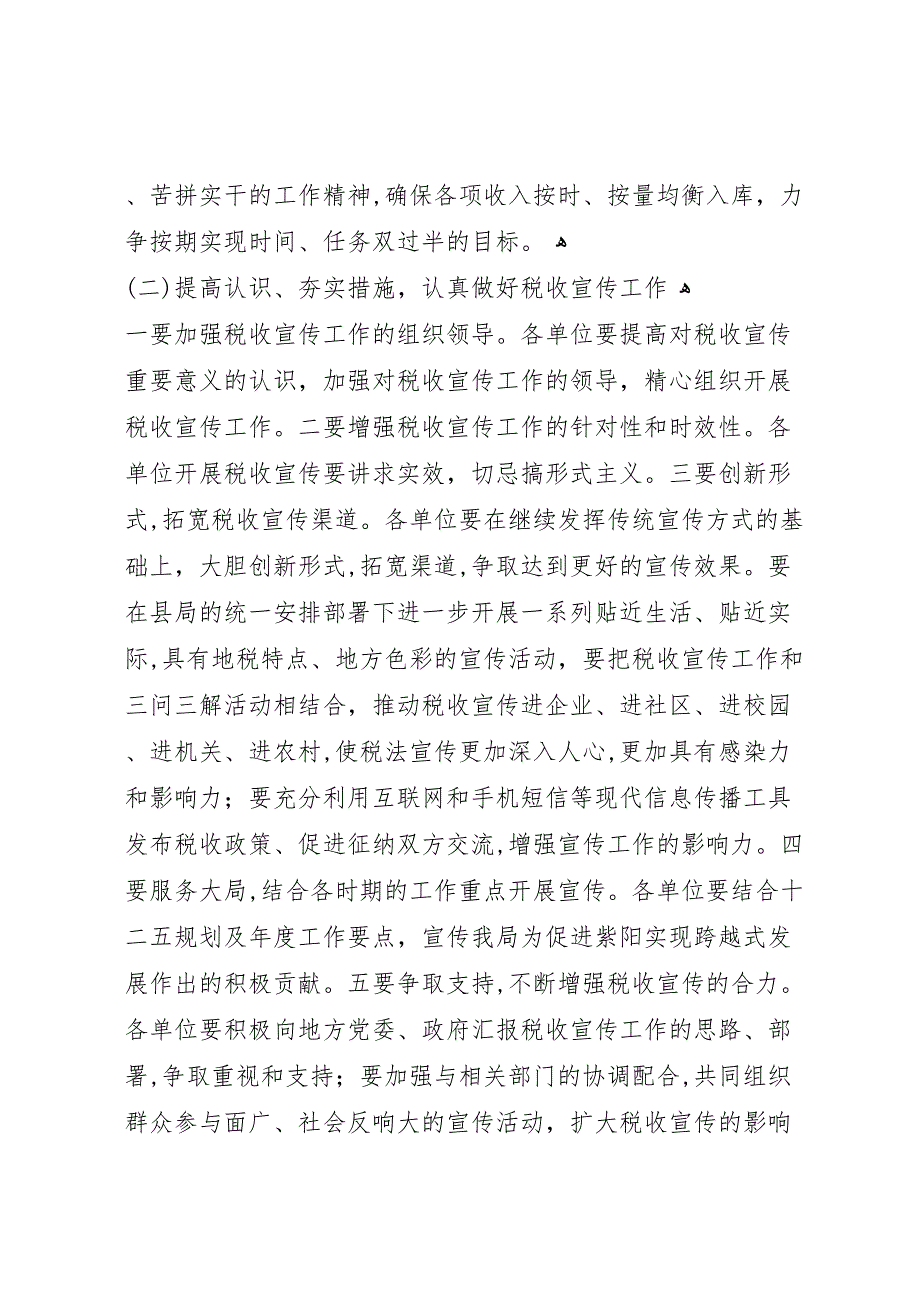 、苦拼实干的工作精神,确保各项收入按时、按量均衡入库，力
争按期实现时间、任务双过半的目标。 ﻫ
(二)提高认识、夯实措施，认真做好税收宣传工作 ﻫ
一要加强税收宣传工作的组织领导。各单位要提高对税收宣传
重要意义的认识，加强对税收宣传工作的领导，精心组织开展
税收宣传工作。二要增强税收宣传工作的针对性和时效性。各
单位开展税收宣传要讲求实效，切忌搞形式主义。三要创新形
式,拓宽税收宣传渠道。各单位要在继续发挥传统宣传方式的基
础上，大胆创新形式,拓宽渠道,争取达到更好的宣传效果。要
在县局的统一安排部署下进一步开展一系列贴近生活、贴近实
际,具有地税特点、地方色彩的宣传活动，要把税收宣传工作和
三问三解活动相结合，推动税收宣传进企业、进社区、进校园
、进机关、进农村,使税法宣传更加深入人心,更加具有感染力
和影响力；要充分利用互联网和手机短信等现代信息传播工具
发布税收政策、促进征纳双方交流,增强宣传工作的影响力。四
要服务大局,结合各时期的工作重点开展宣传。各单位要结合十
二五规划及年度工作要点，宣传我局为促进紫阳实现跨越式发
展作出的积极贡献。五要争取支持,不断增强税收宣传的合力。
各单位要积极向地方党委、政府汇报税收宣传工作的思路、部
署,争取重视和支持；要加强与相关部门的协调配合,共同组织
群众参与面广、社会反响大的宣传活动，扩大税收宣传的影响